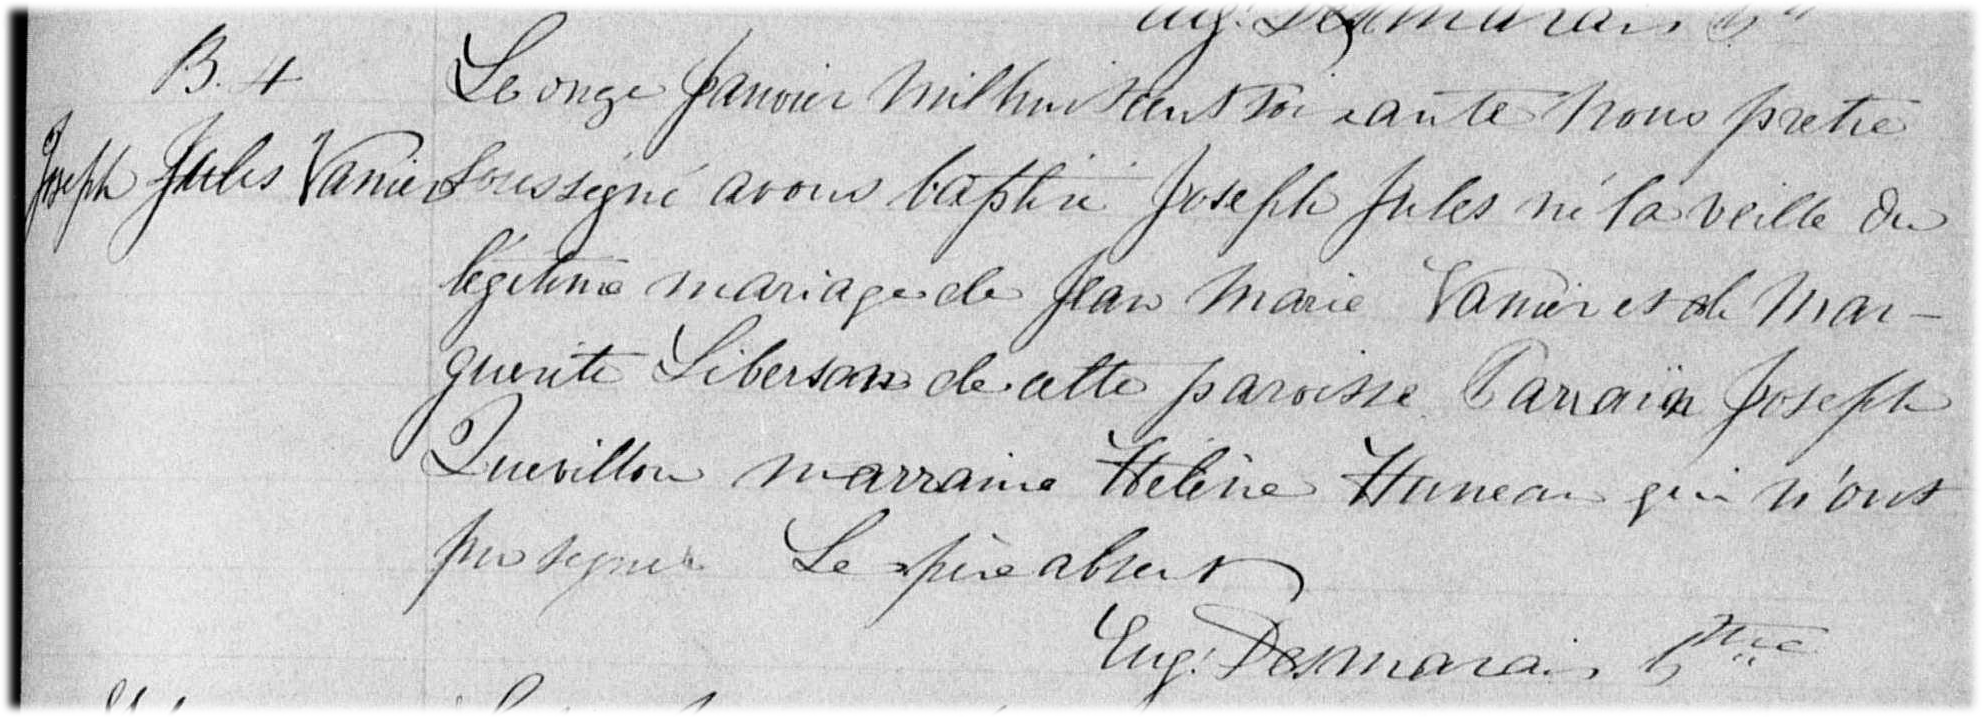 Eug. Desmarais
B. 4
Le onze Janvier mil huit cent soixante nous pretre
Joseph Jules Vanier
soussigné avons baptisé Joseph Jules né la veille du
légitime mariage de Jean Marie Vanier et de Mar-
guerite Liberson de cette paroisse Parrain Joseph
Quevillon marraine Hélène Huneau qui n'ont
pu signer Le père absent
Eug. Desmarais Ptre